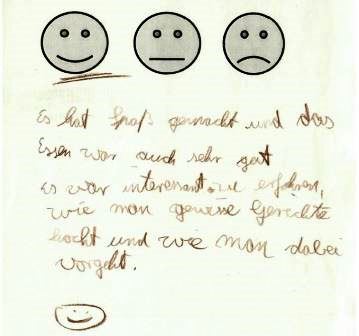 Es hat Spaß gemacht und das
Essen war auch sehr gut
Es war interessant zu erfahren,
wie man gewisse Gerichte
kocht und wie man dabei
vorgeht.